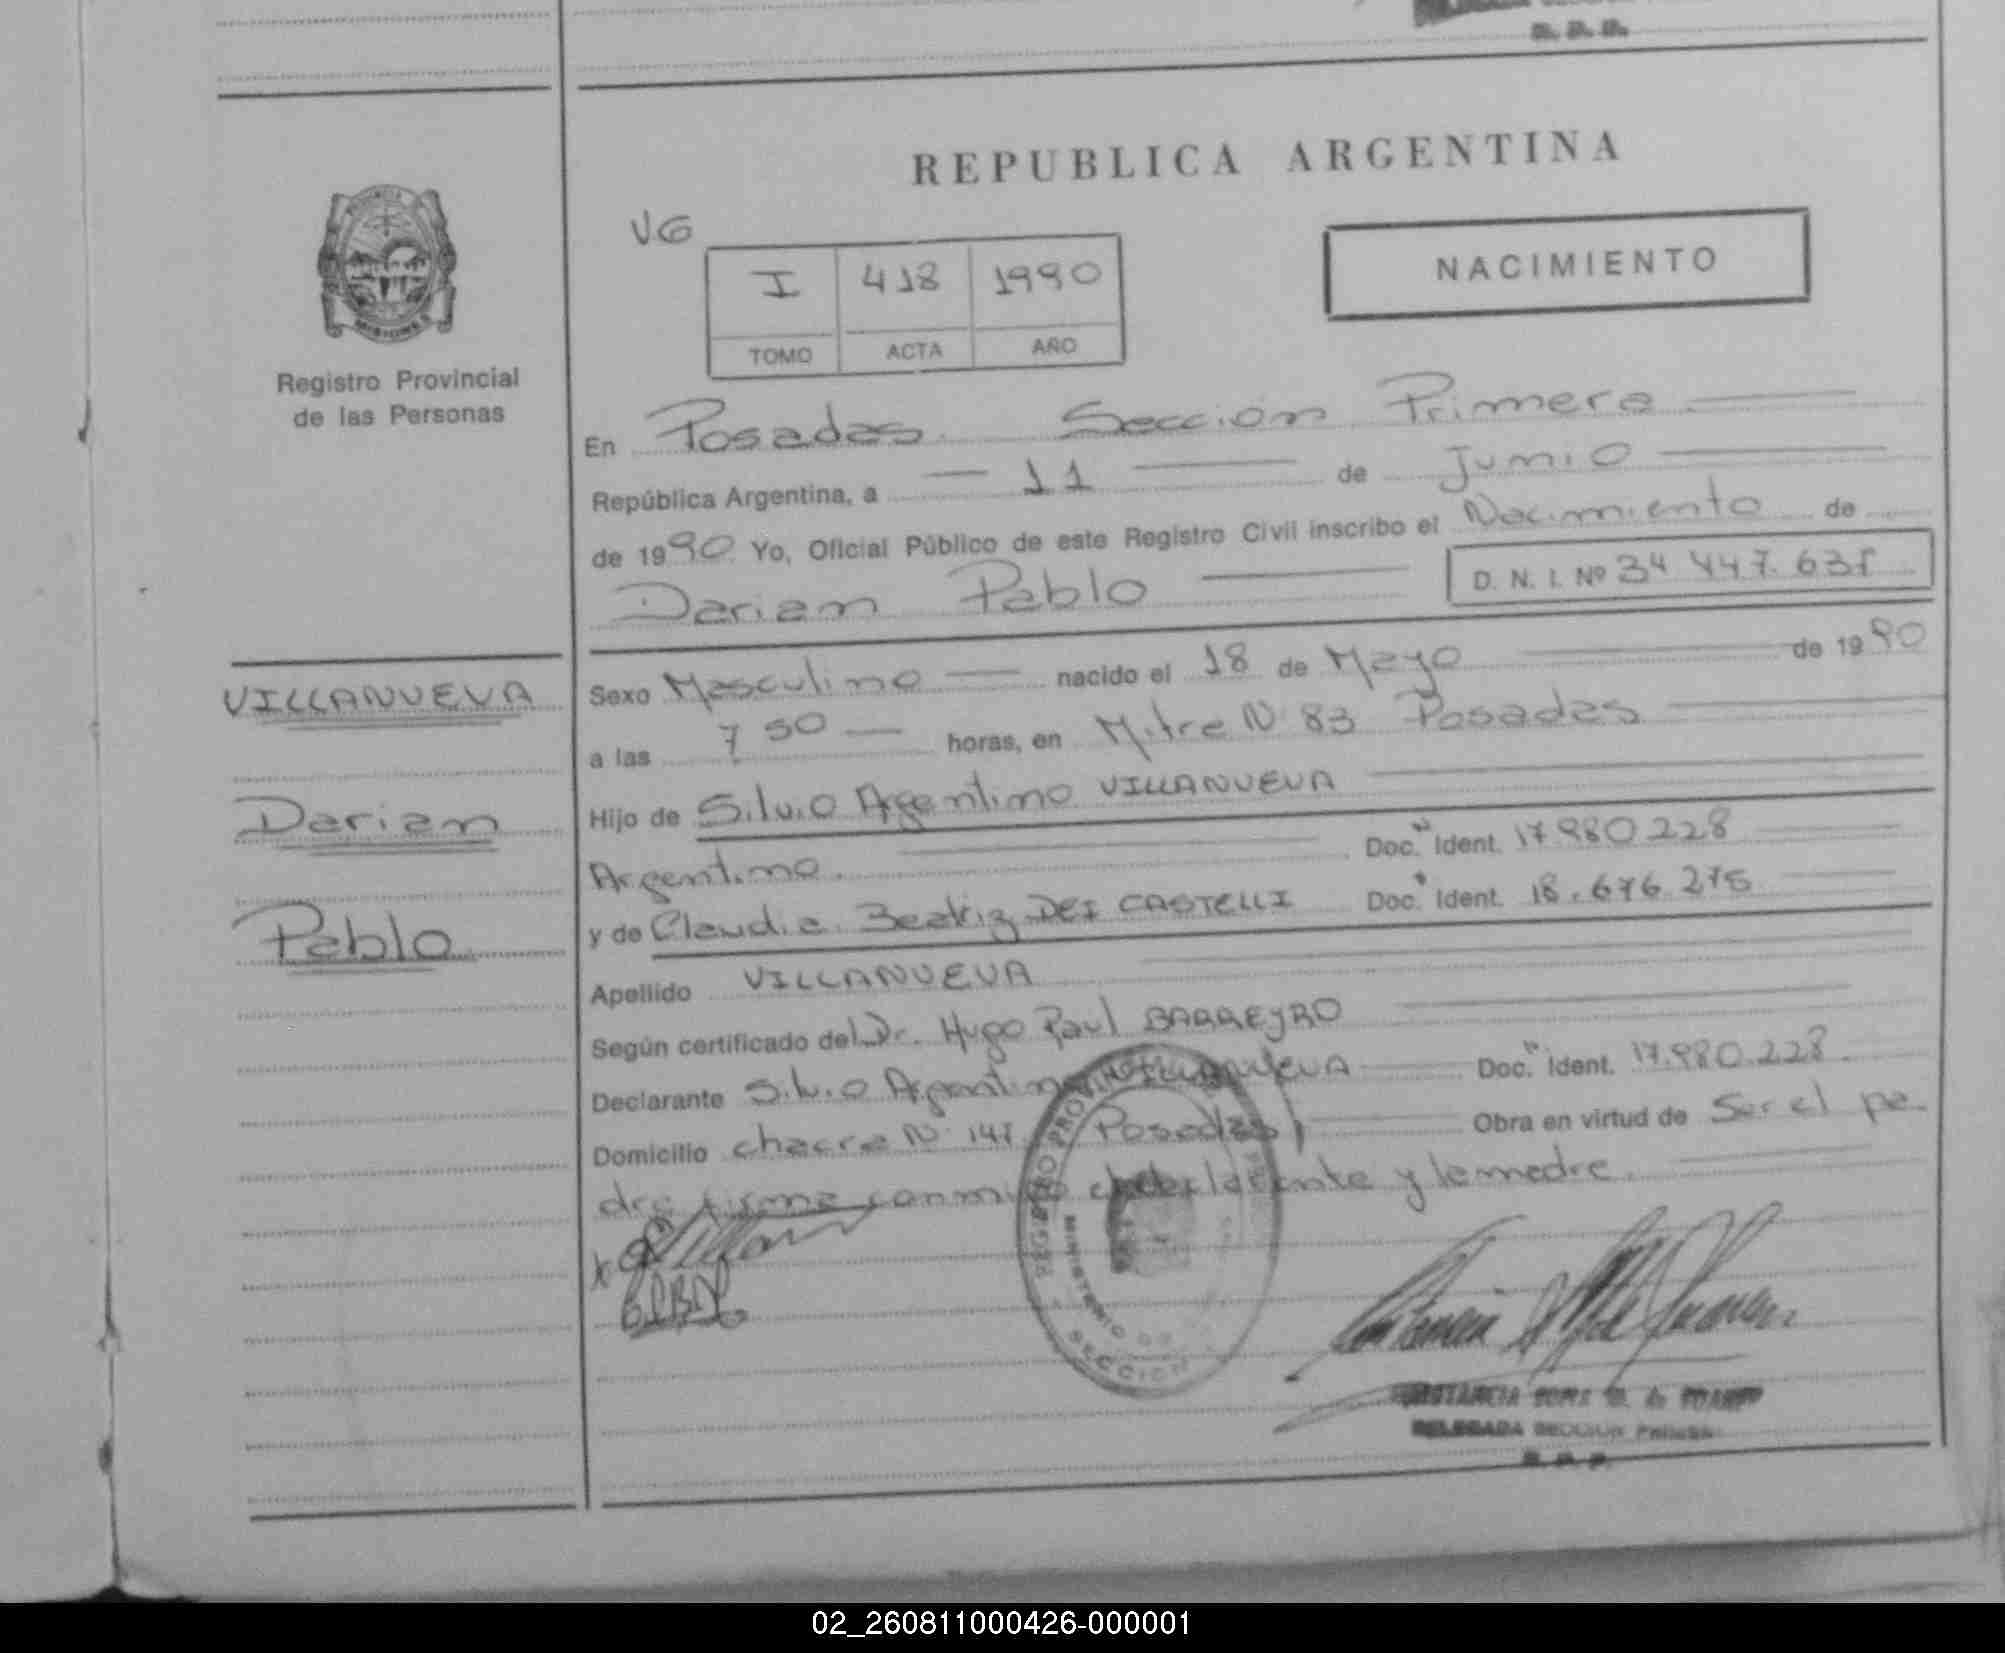 R. P. P.
REPUBLICA ARGENTINA
VG
I 418 1990
TOMO ACTA AÑO
NACIMIENTO
MISIONES
Registro Provincial
de las Personas
En Posadas Sección Primera
República Argentina, a 11 de Junio
de 1990 Yo, Oficial Público de este Registro Civil inscribo el Nacimiento de
Darian Pablo
D. N. I. Nº 34 447.63
VILLANUEVA
Darian
Pablo
Sexo Masculino nacido el 18 de Mayo de 1990
a las 7 50 horas, en Mitre N 83 Posadas
Hijo de Silvio Argentino VILLANUEVA
Argentino Doc. Ident. 17.980.228
y de Claudia Beatriz DEI CASTELLI Doc. Ident. 18.676.275
Apellido VILLANUEVA
Según certificado del Dr. Hugo Raul BARREYRO
Declarante Silvio Argentino VILLANUEVA Doc. Ident. 17.980.228
Domicilio chacra N 147 Posadas Obra en virtud de Ser el pa
dre firma conmigo el declarante y la madre.
REGISTRO PROVINCIAL
MINISTERIO DE
SECCION
DELEGADA SECCION PRIMERA
R. P. P.
02_260811000426-000001